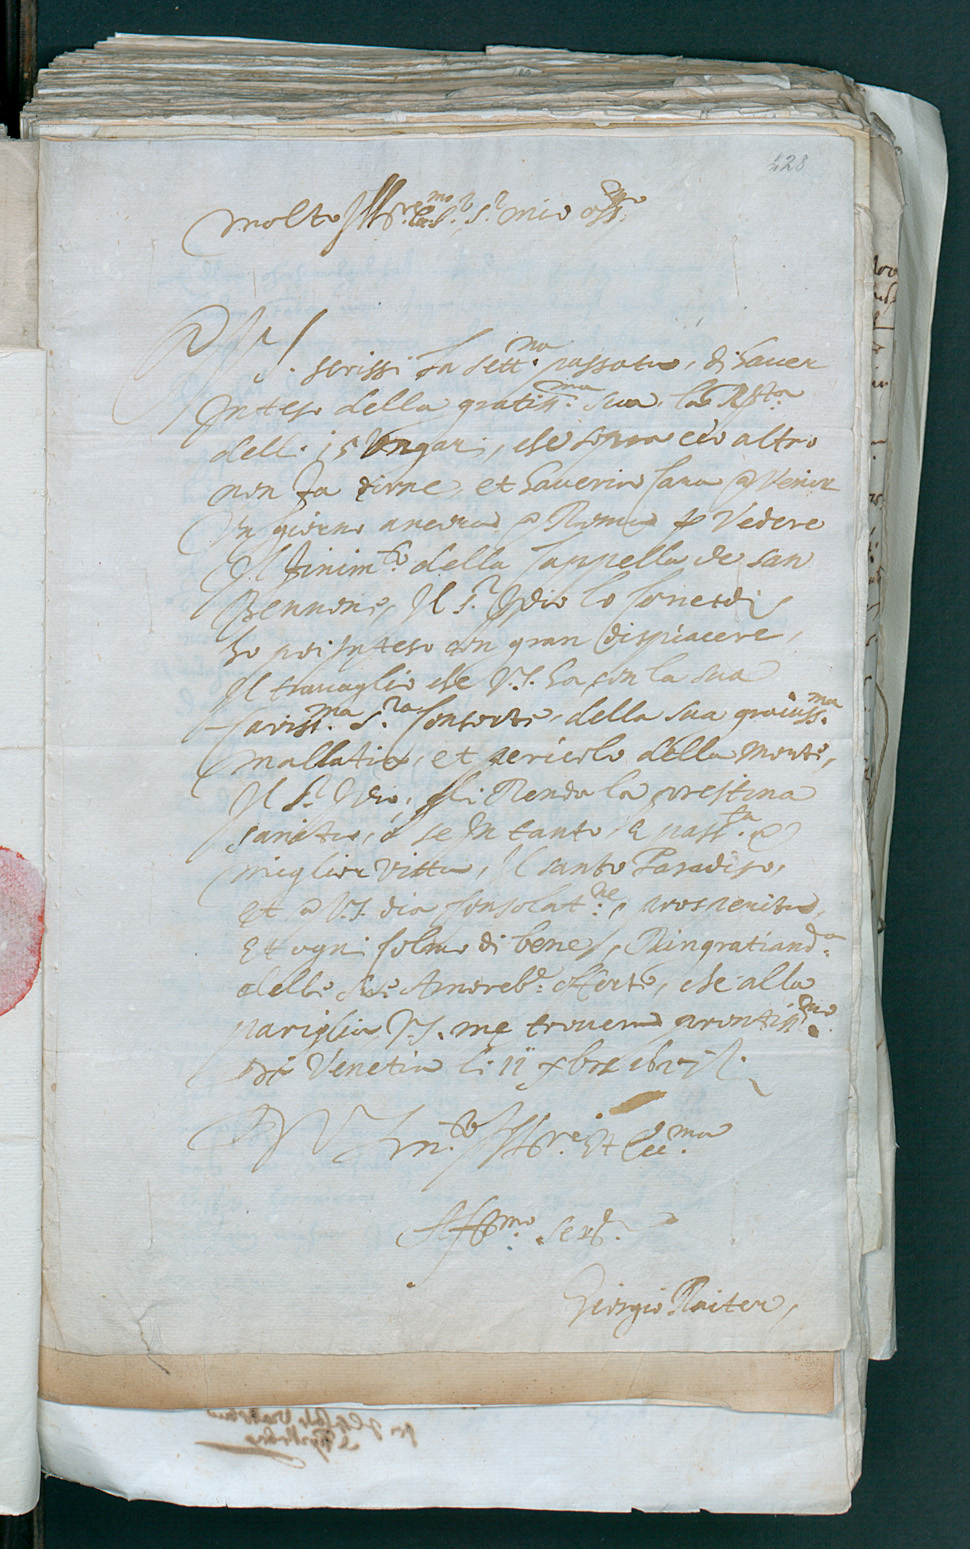 428
Molto Ill.re et Ecc.mo S.r S.r mio oss.mo
A V. S. scrissi la sett.na passata, di haver
Inteso della gratiss.ma sua, la Rista
delli 15 Ungari, che sopra ciò altro
non fa dirne, et haverin cara p venir
Un giorno ancora a Roma p Vedere
Il finim.to della Cappella de san
Bennone, Il S.r Idio lo Conceda
ho poi Inteso con gran dispiacere,
Il travaglio che V.S. ha con la sua
Cariss.ma S.ra Consorte, della sua graviss.ma
mallatia, et pericolo della morte,
Il S.r Idio, gli Renda la prestina
sanitta, ò se In tanto, è pass.ta a
miglior Vitta, Il santo Paradiso,
et a V.S. dia Consolat.ne, prosperita,
Et ogni Colmo di bene, Ringratiand.a
delle sue Amorev.e offerte, che alla
pariglia V.S. me trovera prontiss.mo
Di Venetia li 11 xbre
D V S m.to Ill.re et Ecc.ma
Aff.mo Ser.
Giorgio Raiter,